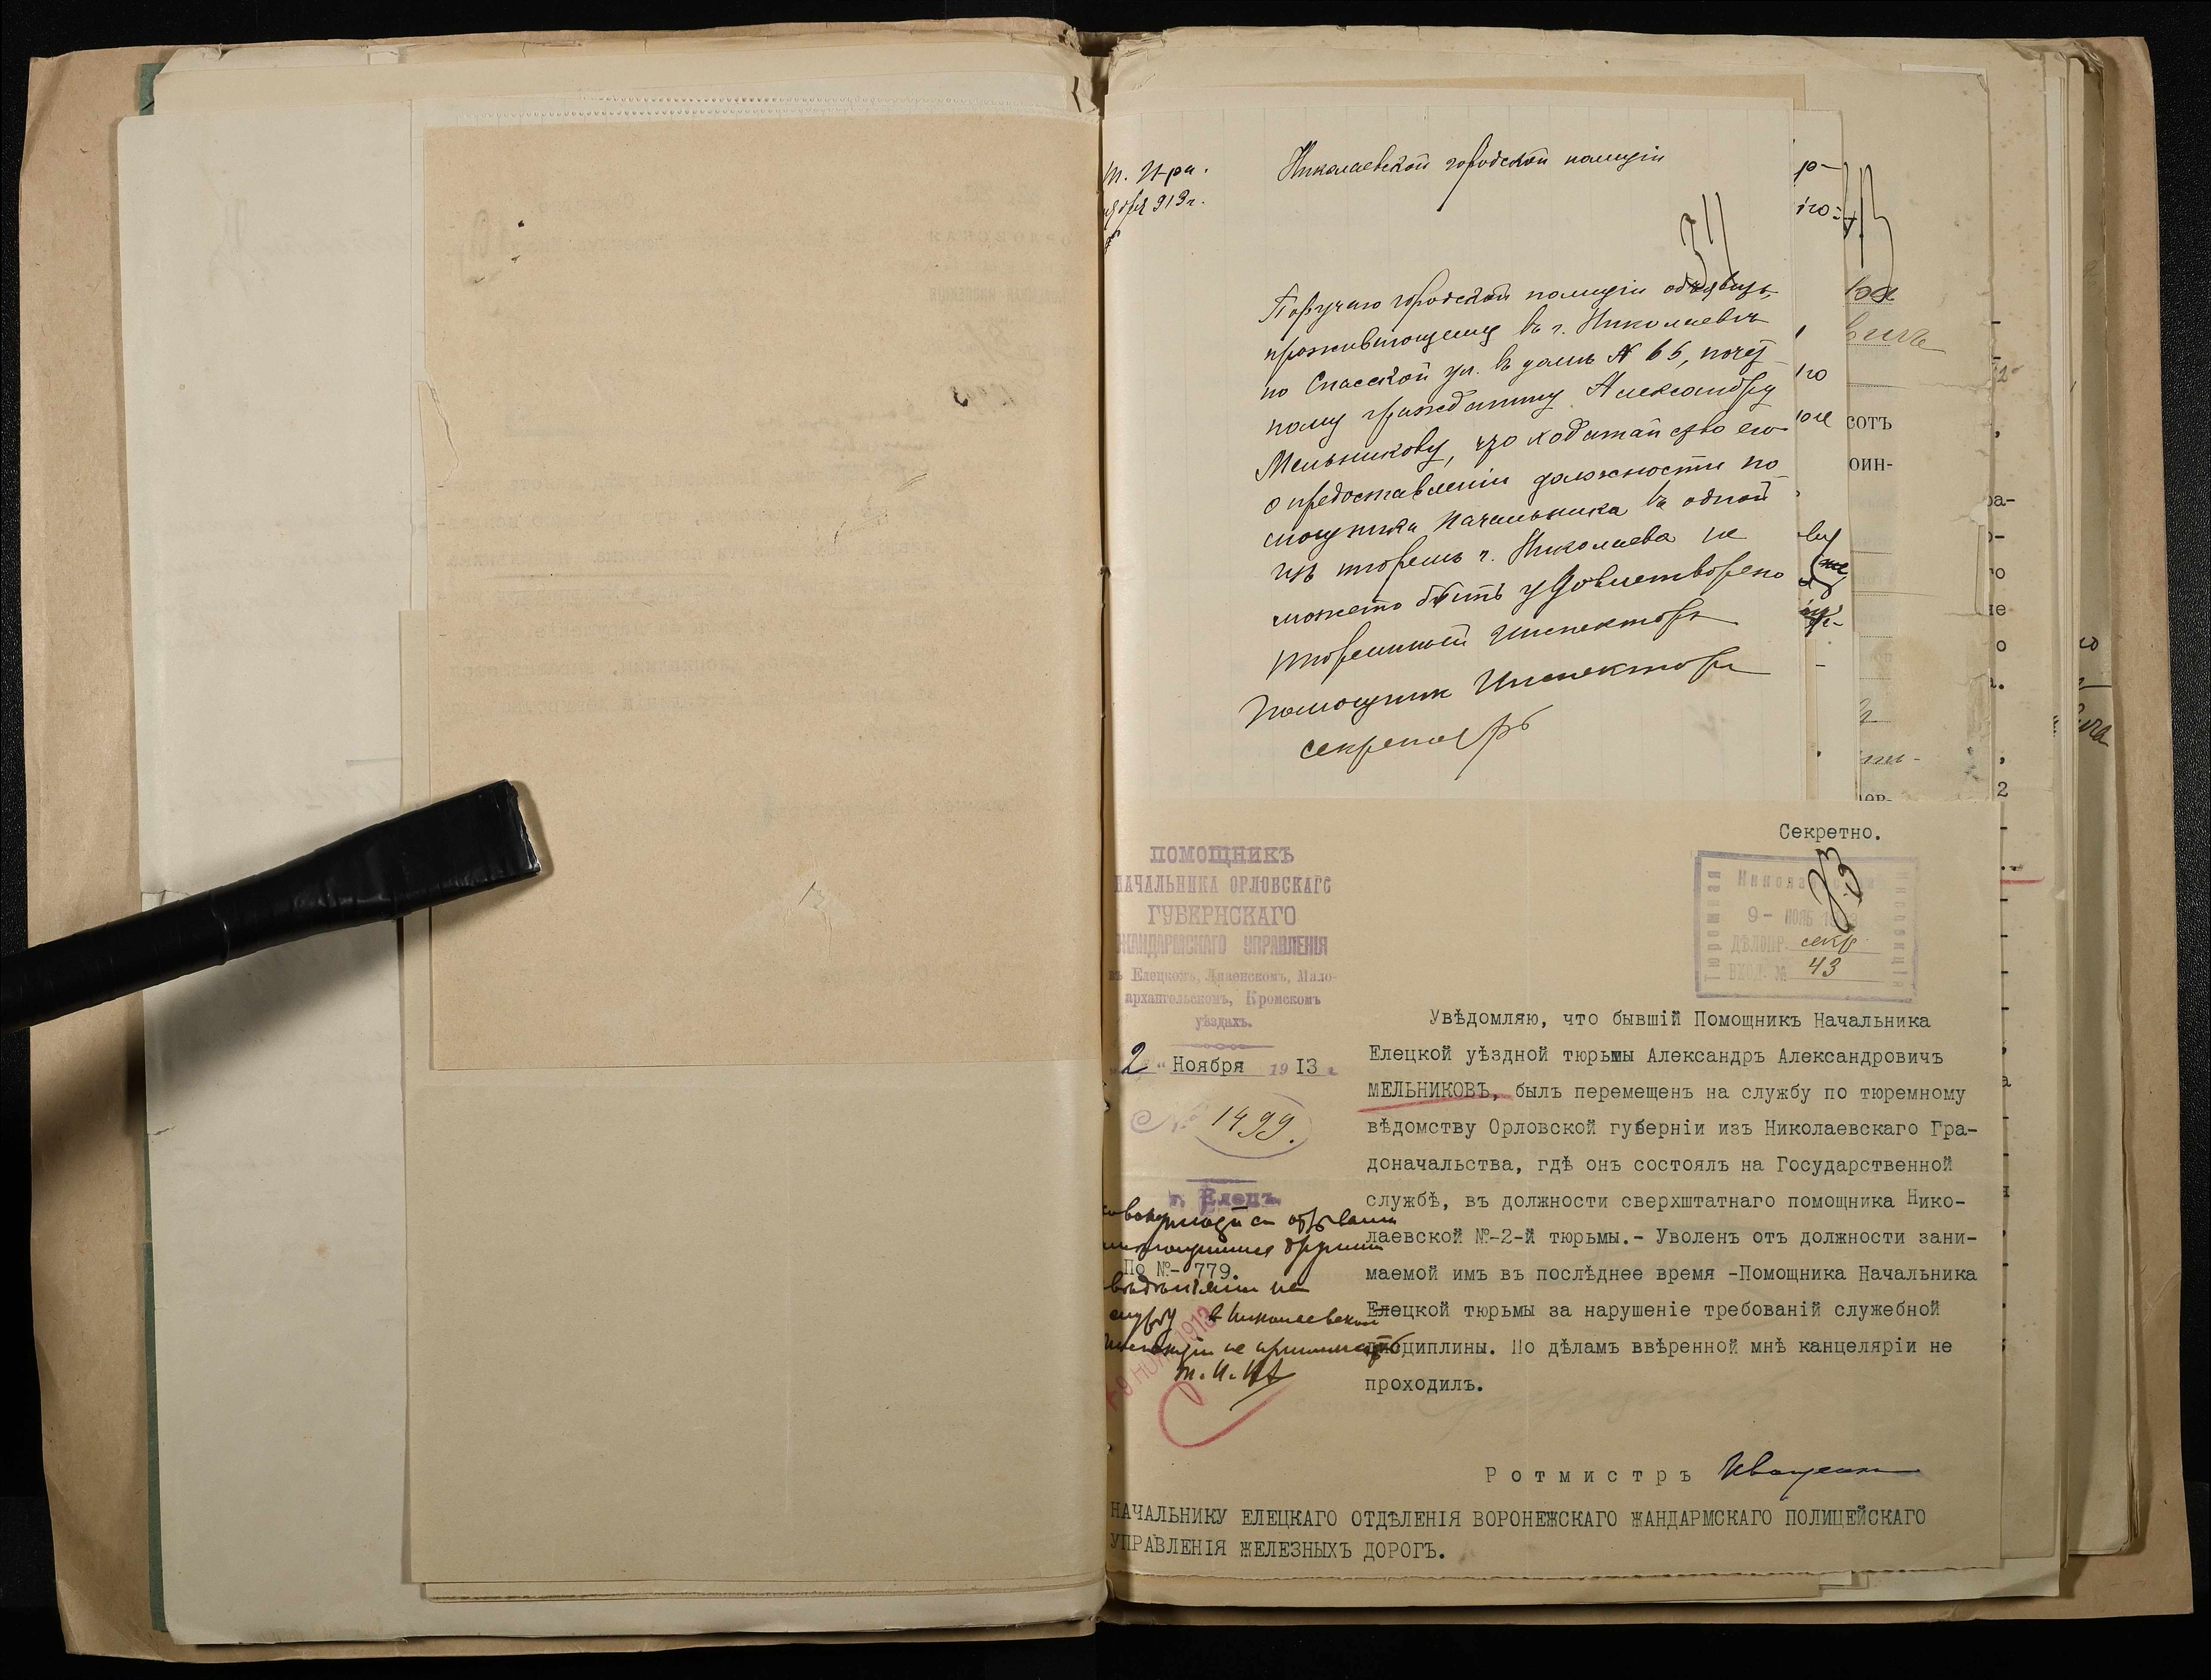 Николаевской городской полиціи
Поручаю городской полиціи объявить,
проживающему въ г. Николаевѣ
по Спасской ул. въ домѣ № 65, почет
ному гражданину Александру
Мельникову, что ходатайство его
о предоставленіи должности по
мощника Начальника въ одной
изъ тюремъ г. Николаева не
можетъ быть удовлетворено
Тюремный Инспекторъ
Помощник Инспектора
секретарь
Секретно.
ПОМОЩНИКЪ
НАЧАЛЬНИКА ОРЛОВСКАГО
ГУБЕРНСКАГО
ЖАНДАРМСКАГО УПРАВЛЕНІЯ
въ Елецкомъ, Ливенскомъ, Мало-
архангельскомъ, Кромскомъ
уѣздахъ.
„2“ Ноября 1913 г.
№ 1499.
г. Елецъ.
По №- 779.
9 - НОЯБ 1913
ДѢЛОПР. секр.
ВХОД. № 43
Увѣдомляю, что бывшій Помощникъ Начальника
Елецкой уѣздной тюрьмы Александръ Александровичъ
МЕЛЬНИКОВЪ, былъ перемещенъ на службу по тюремному
вѣдомству Орловской губерніи изъ Николаевскаго Гра-
доначальства, гдѣ онъ состоялъ на Государственной
службѣ, въ должности сверхштатнаго помощника Нико-
лаевской №-2-й тюрьмы.- Уволенъ отъ должности зани-
маемой имъ въ послѣднее время -Помощника Начальника
Елецкой тюрьмы за нарушеніе требованій служебной
дисциплины. По дѣламъ ввѣренной мнѣ канцеляріи не
проходилъ.
Ротмистръ
НАЧАЛЬНИКУ ЕЛЕЦКАГО ОТДѢЛЕНІЯ ВОРОНЕЖСКАГО ЖАНДАРМСКАГО ПОЛИЦЕЙСКАГО
УПРАВЛЕНІЯ ЖЕЛЕЗНЫХЪ ДОРОГЪ.